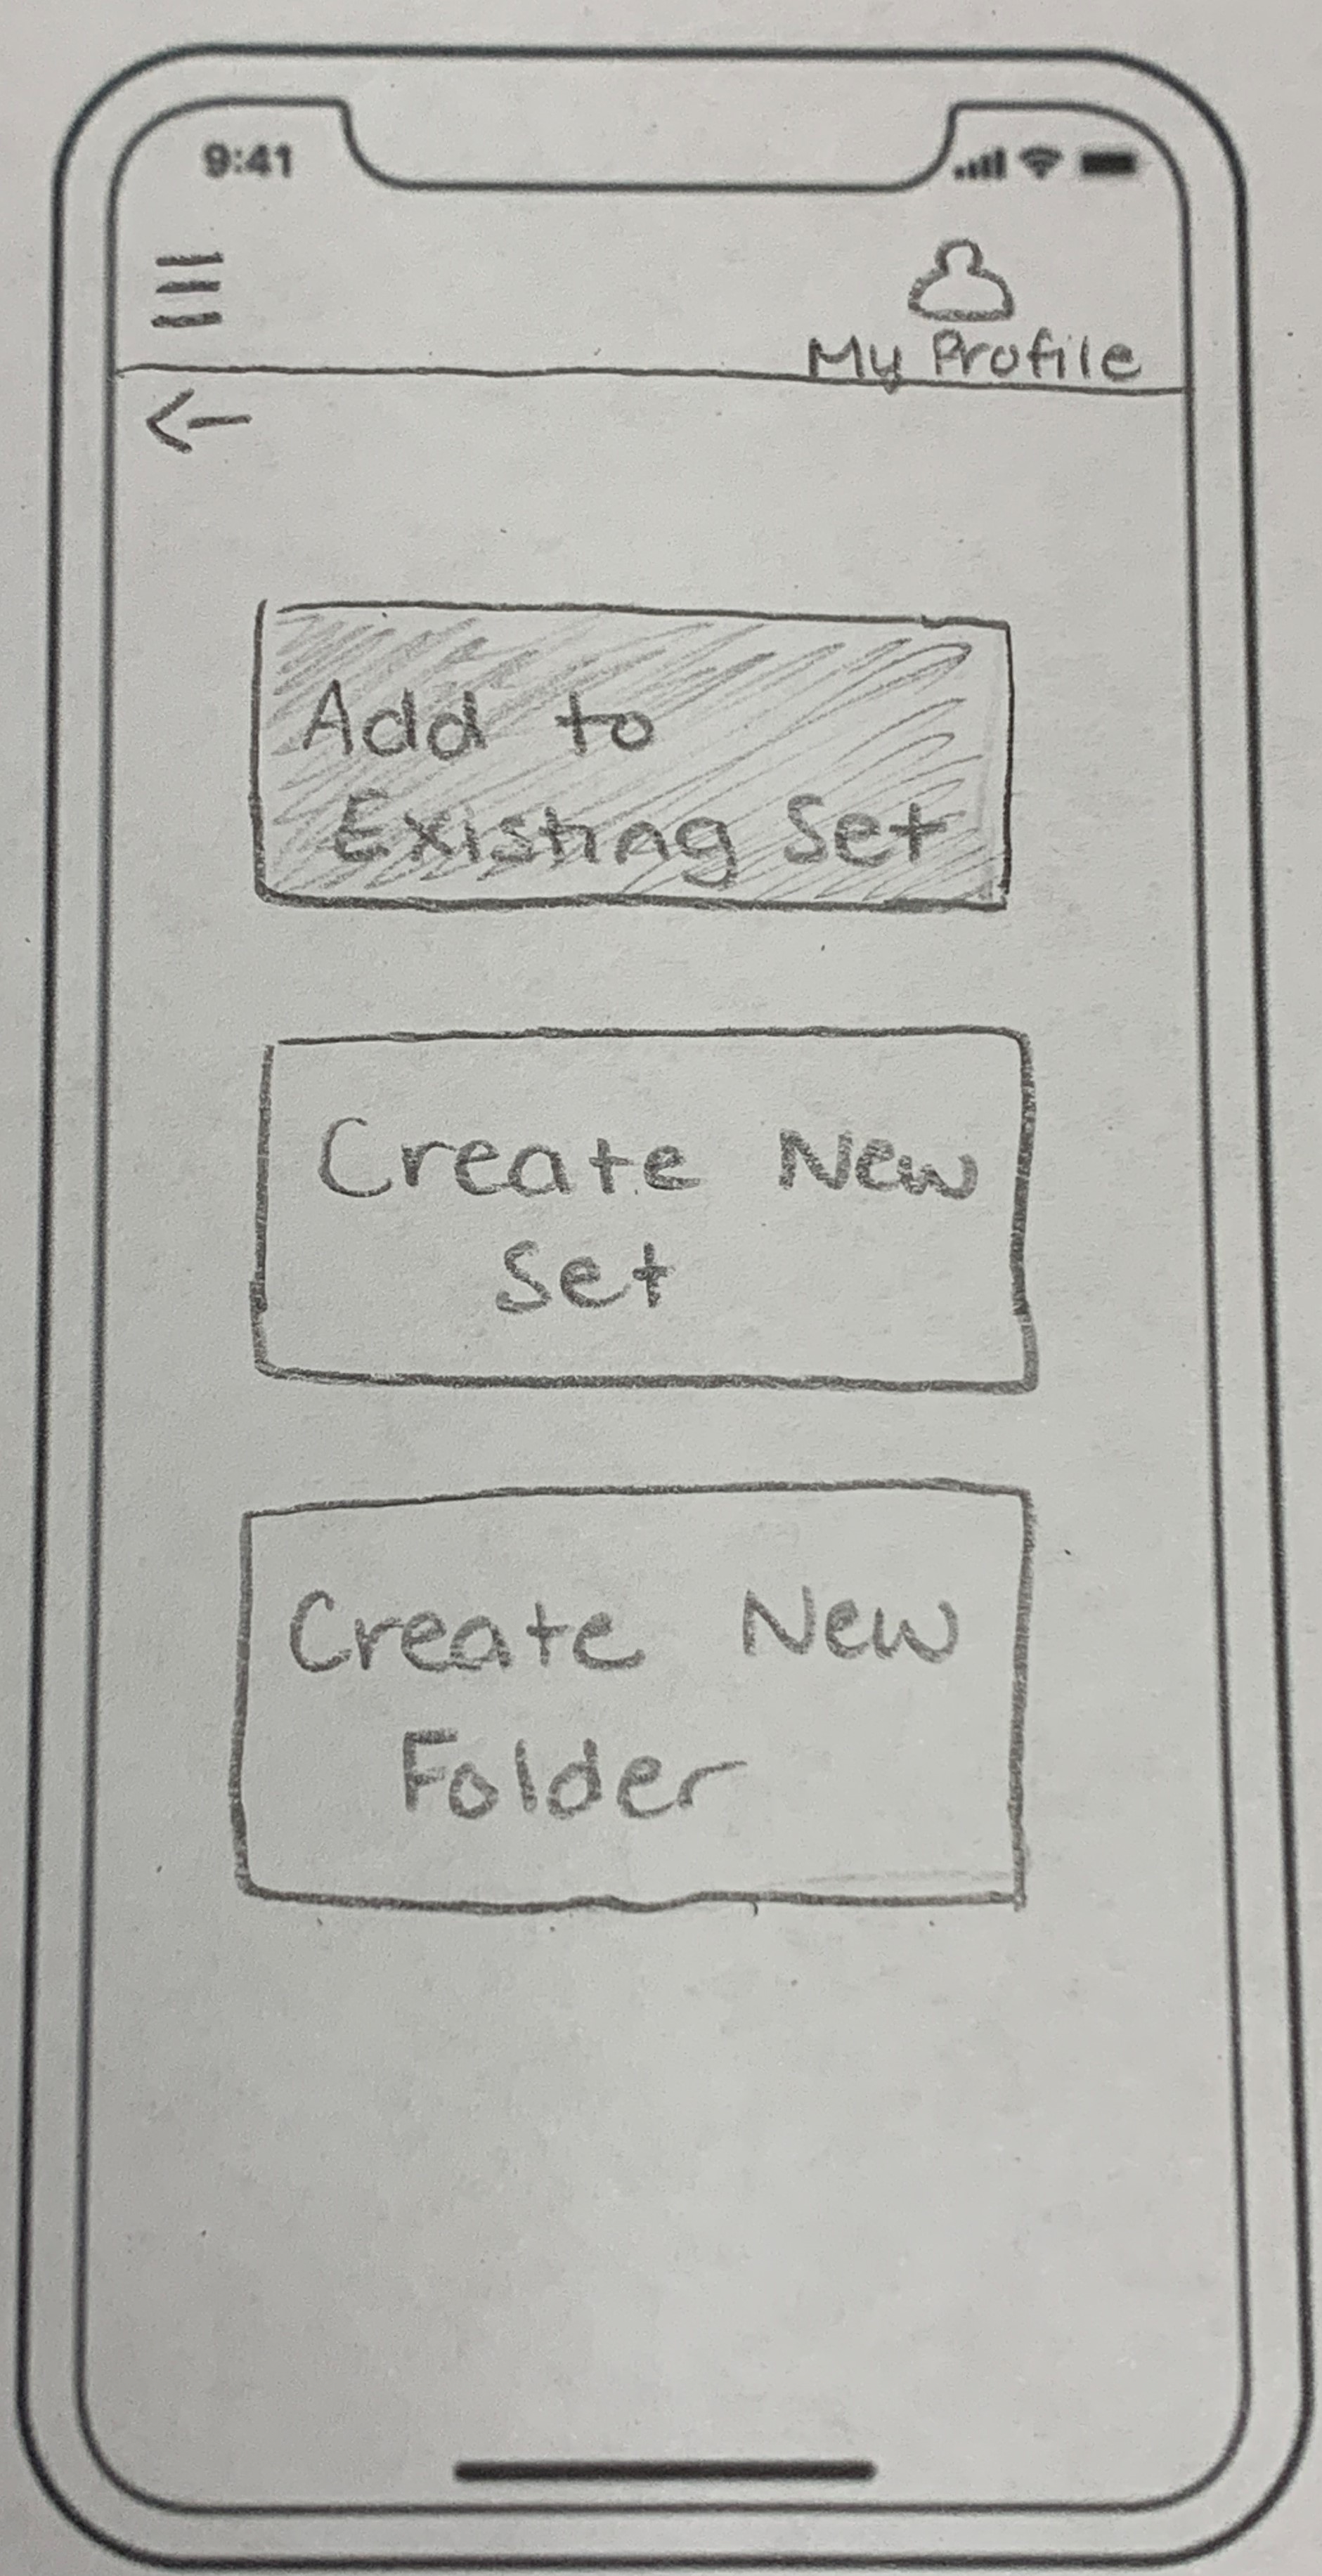 9:41
My Profile
Add to
Existing Set
Create New
Set
Create New
Folder